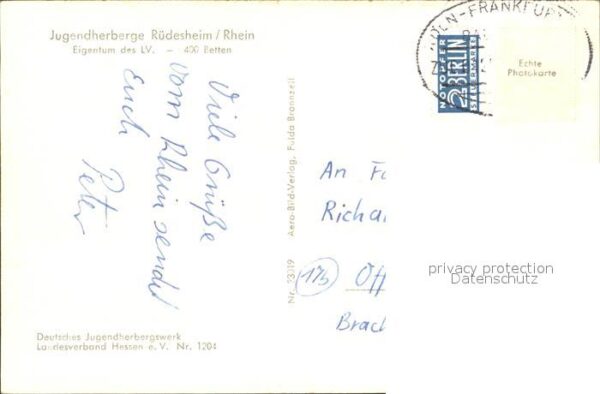 Jugendherberge Rüdesheim / Rhein
Eigentum des LV. - 400 Betten
Viele Grüße
vom Rhein sendet
Euch
Peter
Deutsches Jugendherbergswerk
Landesverband Hessen e. V. Nr. 1204
Nr. 23019 Aero-Bild-Verlag, Fulda Bronnzell
KÖLN-FRANKFURT
NOTOPFER
2 BERLIN
STEUERMARKE
Echte
Photokarte
An Fa
Richa
(17b) Off
Brach
privacy protection
Datenschutz